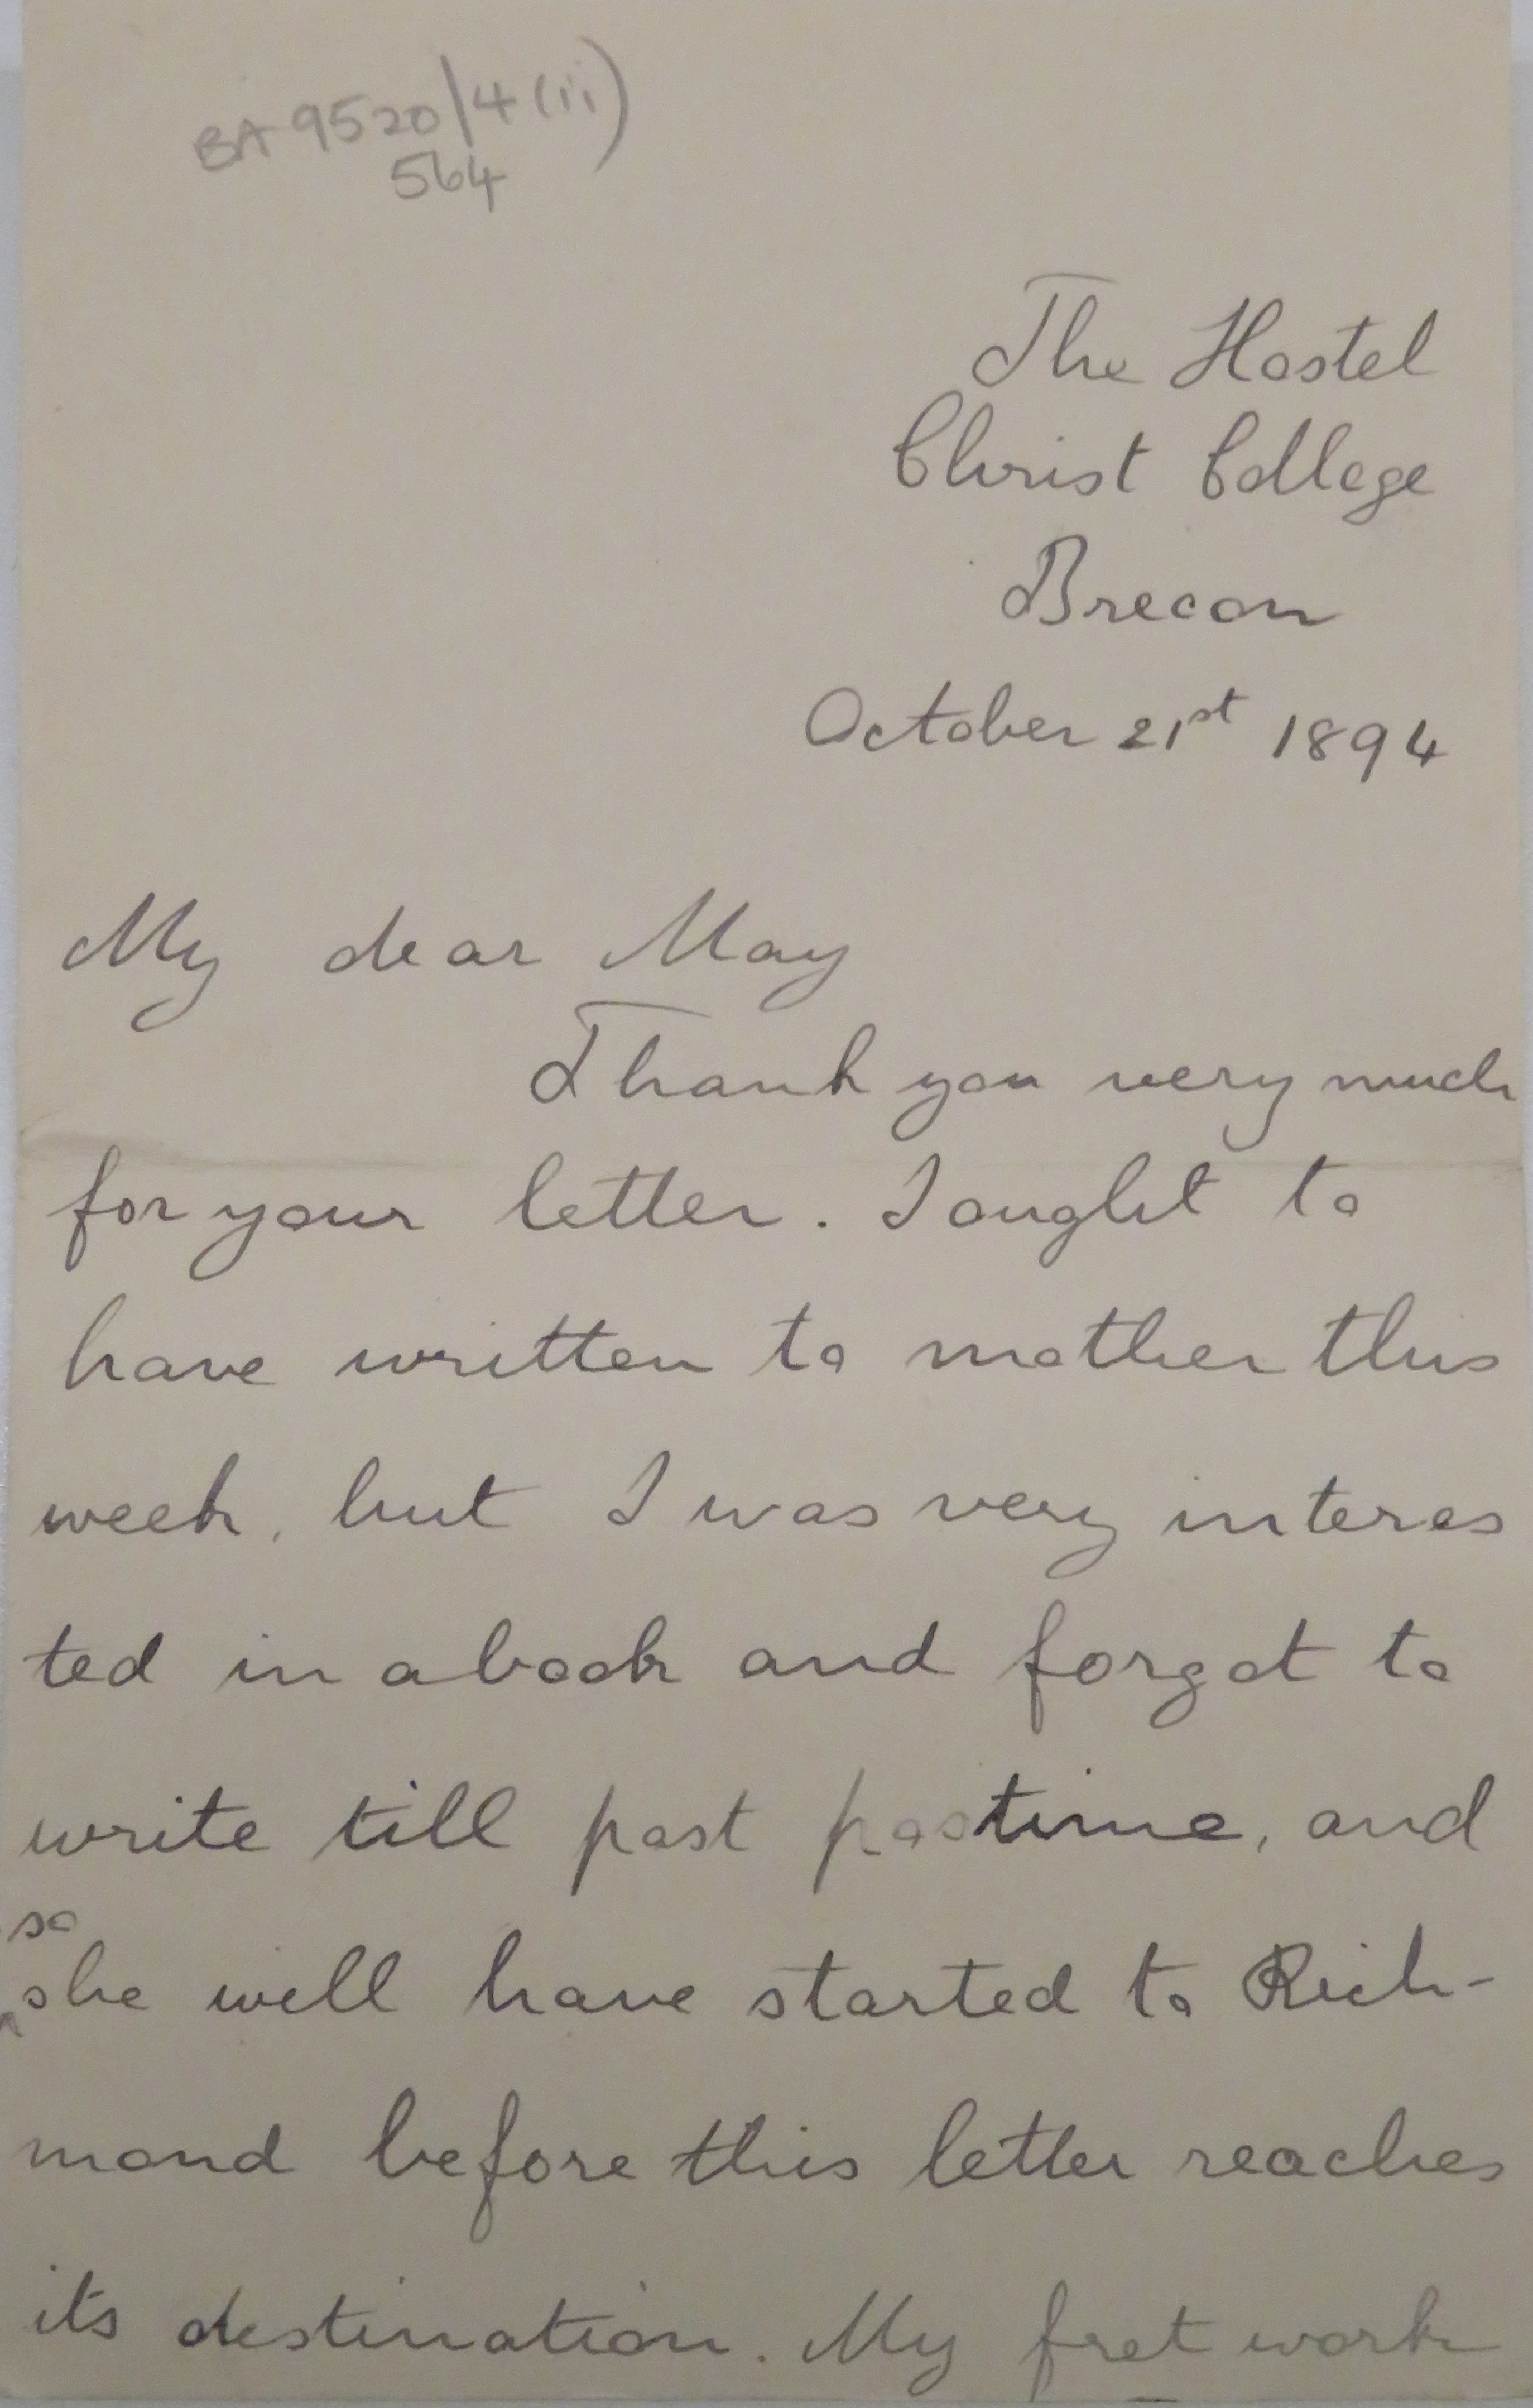 BA 9520/4(ii)
564
The Hostel
Christ College
Brecon
October 21st 1894
My dear May
Thank you very much
for your letter. I ought to
have written to mother this
week, but I was very interes
ted in a book and forgot to
write till past pastime, and
so
she will have started to Rich-
mond before this letter reaches
its destination. My fret work